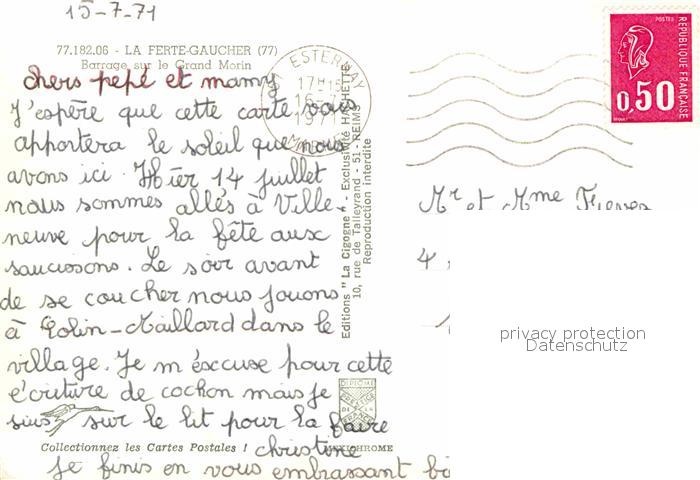 15-7-71
77.182.06 - LA FERTE-GAUCHER (77)
Barrage sur le Grand Morin
chers pepé et mamy
J'espère que cette carte vous
apportera le soleil que nous
avons ici. Hier 14 juillet
nous sommes allés à Ville-
neuve pour la fête aux
saucissons. Le soir avant
de se coucher nous jouons
à Colin-Maillard dans le
village. Je m'éxcuse pour cette
écriture de cochon mais je
suis sur le lit pour la faire
christine
Je finis en vous embrassant
Collectionnez les Cartes Postales !
MEXICHROME
Editions "La Cigogne" - Exclusivité HACHETTE
10, rue de Talleyrand - 51 - REIMS
Reproduction interdite
ESTERNAY
17H15
1971
POSTES
REPUBLIQUE FRANÇAISE
0,50
Mr et Mme
4
privacy protection
Datenschutz